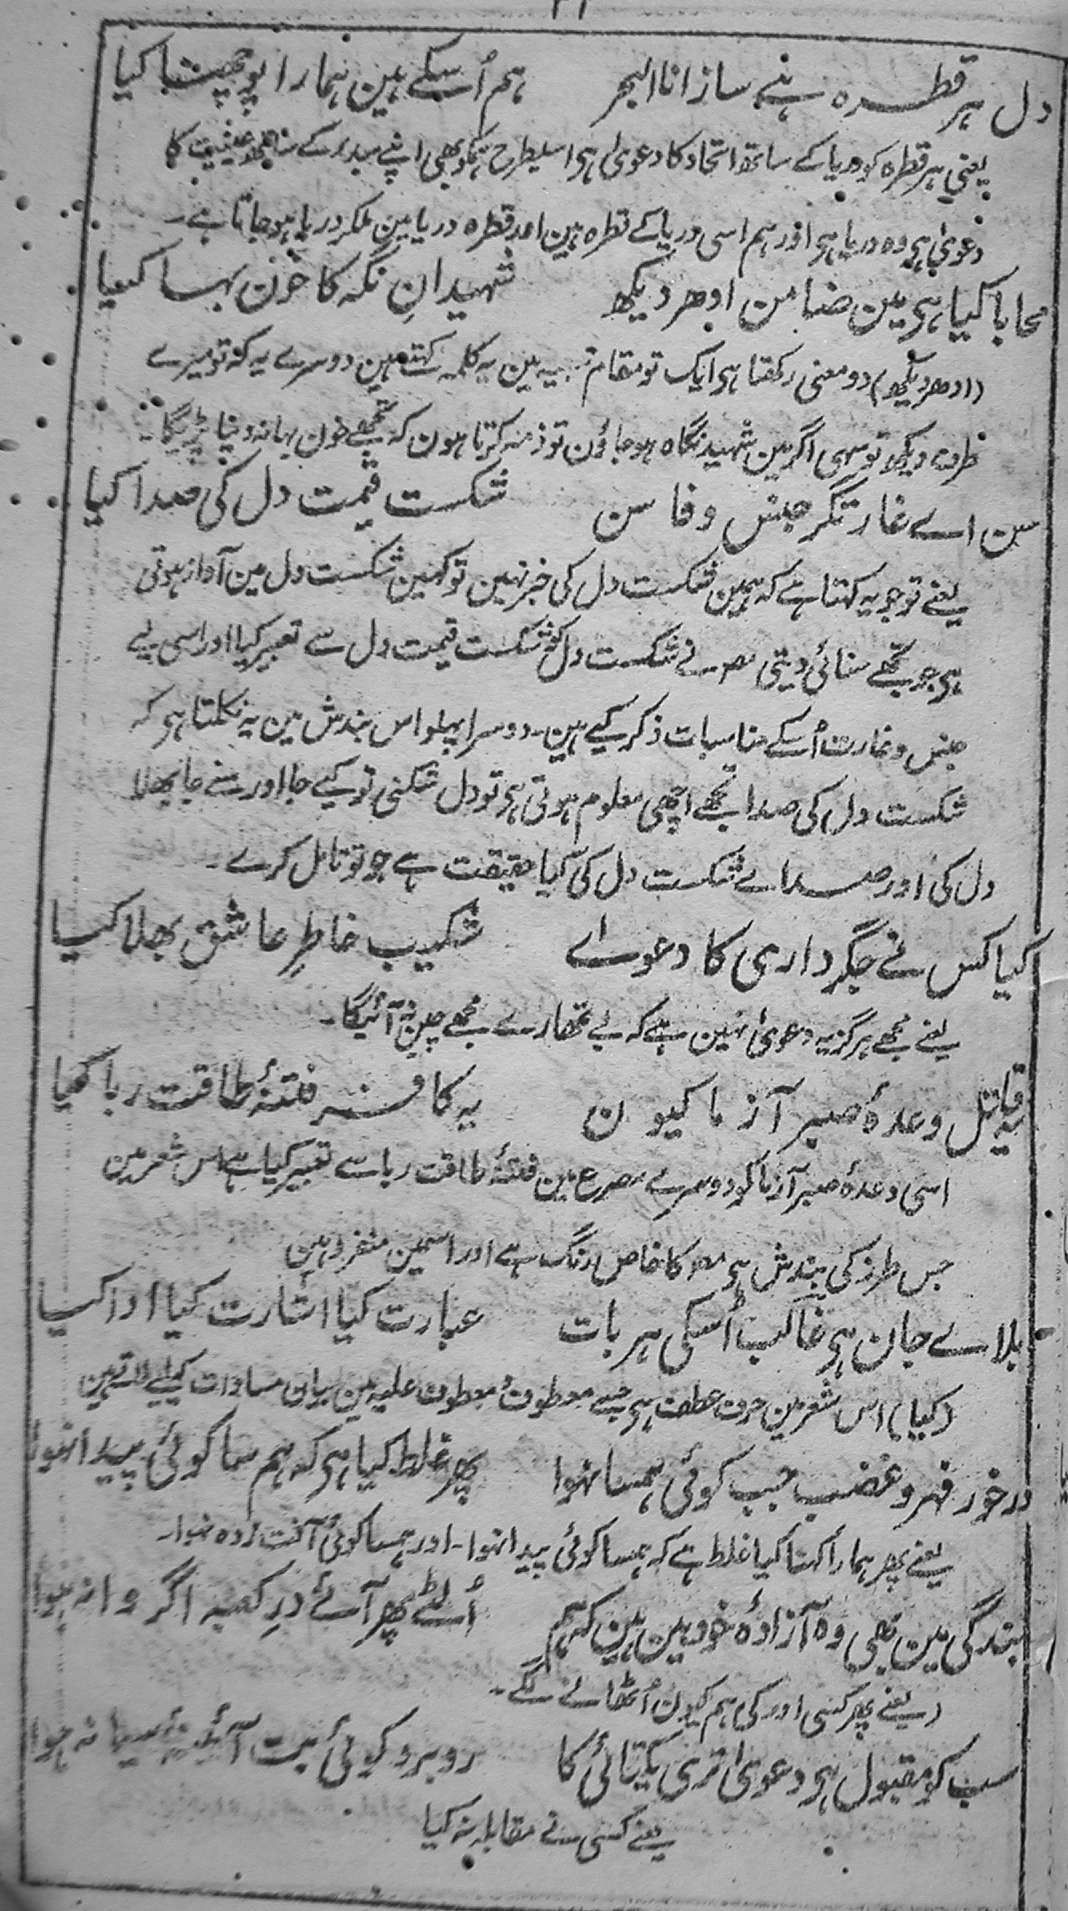 دل ہر قطرہ ہے ساز انا البحر ہم اُسکے ہین ہمارا پوچھنا کیا
یعنی ہر قطرہ کو دریا کے ساتھ اتحاد کا دعویٰ ہی اسیطرح ہمکو بھی اپنے مبدر کے ساتھ عینیت کا
دعویٰ ہی وہ دریا ہی اور ہم اسی دریا کے قطرہ ہین اور قطرہ دریا مین ملکر دریا ہو جاتا ہے۔
محابا کیا ہی مین ضامن اودھر دیکھ شہیدانِ نگہ کا خون بہا کیا
(ادھر دیکھ) دو معنی رکھتا ہی ایک تو مقام تنبیہ مین یہ کلمہ کہتے ہین دوسرے یہ کہ تو میرے
طرف دیکھ تو سہی اگر مین شہید نگاہ ہو جاؤن تو ذمہ کرتا ہون کہ تجھے خون بہا نہ دینا پڑیگا۔
سن اے غارتگر جنس وفا سن شکست قیمت دل کی صدا کیا
یعنے تو جو یہ کہتا ہے کہ ہمین شکست دل کی خبر نہین تو کہین شکست دل مین آواز ہوتی
ہی جو تجھے سنائی دیتی مصہ نے شکست دل کو شکست قیمت دل سے تعبیر کیا اور اسی لیے
جنس و غارت اُسکے مناسبات ذکر کیے ہین۔ دوسرا پہلو اس بندش مین یہ نکلتا ہی کہ
شکست دل کی صدا تجھے اچھی معلوم ہوتی ہی تو دل شکنی تو کیے جا اور سنے جا بھلا
دل کی اور صداے شکست دل کی کیا حقیقت ہے جو تو تامل کرے۔
کیا کس نے جگرداری کا دعوے شکیب خاطرِ عاشق بھلا کیا
یعنے مجھے ہرگز یہ دعویٰ نہین ہے کہ بے تمھارے مجھے چین آئیگا۔
یہ قاتل وعدۂ صبر آزما کیون یہ کافر فتنۂ طاقت ربا کیا
اسی وعدۂ صبر آزما کو دوسرے مصرع مین فتنۂ طاقت ربا سے تعبیر کیا ہے اس شعر مین
جس طرز کی بندش ہی مصہ کا خاص رنگ ہے اور اسمین منفرد ہین
بلاے جان ہی غالب اُسکی ہر بات عبارت کیا اشارت کیا ادا کیا
(کیا) اس شعر مین حرف عطف ہی جسے معطوف و معطوف علیہ مین بیان مساوات کیلیے لاتے ہین
درخور قہر و غضب جب کوئی ہمسا نہوا پھر غلط کیا ہی کہ ہم سا کوئی پیدا نہوا
یعنے پھر ہمارا کہنا کیا غلط ہے کہ ہمسا کوئی پیدا نہوا۔ اور ہمسا کوئی آفت زدہ نہوا۔
بندگی مین بھی وہ آزادۂ خودبین ہین کہ ہم اُلٹے پھر آئے درِ کعبہ اگر وا نہ ہوا
یعنے پھر کسی اور کی ہم کیون اُٹھانے لگے۔
سب کو مقبول ہی دعویٰ تری یکتائی کا روبرو کوئی بت آئینۂ سیما نہ ہوا
یعنے کسی نے مقابلہ نہ کیا